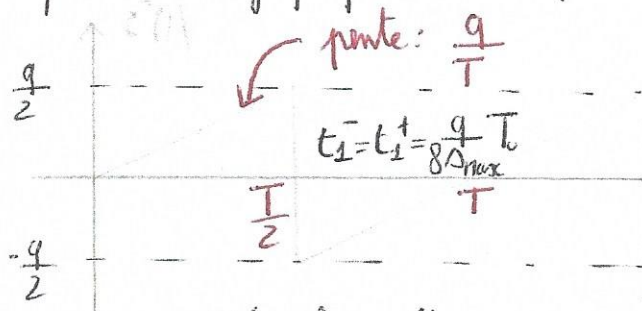 pente: q/T
q/2
t₁⁻ = t₁⁺ = q/(8Δmax) T₀
T/2
T
-q/2